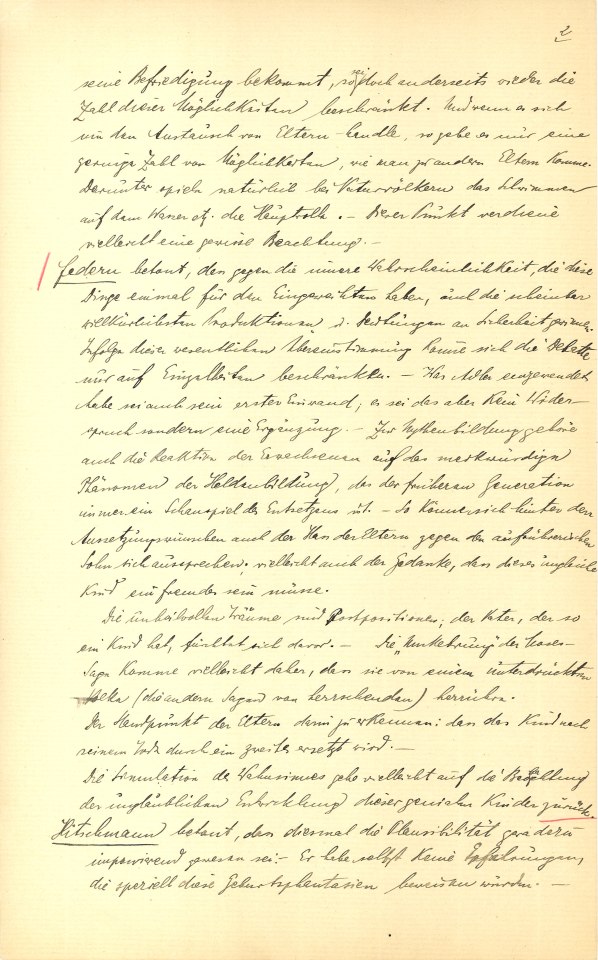 2
seine Befriedigung bekommt, so sei doch anderseits wieder die
Zahl dieser Möglichkeiten beschränkt. Und wenn es sich
um den Austausch von Eltern handle, so gebe es nur eine
geringe Zahl von Möglichkeiten, wie man zu andern Eltern komme.
Darunter spiele natürlich bei Naturvölkern das Schwimmen
auf dem Wasser etc. die Hauptrolle. – Dieser Punkt verdiene
vielleicht eine gewisse Beachtung. –
Federn betont, dass gegen die innere Wahrscheinlichkeit, die diese
Dinge einmal für den Eingeweihten haben, auch die scheinbar
willkürlichsten Produktionen u. Deutungen an Sicherheit gewinnen.
Infolge dieser wesentlichen Übereinstimmung könne sich die Debatte
nur auf Einzelheiten beschränken. – Was Adler eingewendet
habe sei auch sein erster Einwand; es sei das aber kein Wider-
spruch sondern eine Ergänzung. – Zur Mythenbildung gehöre
auch die Reaktion der Erwachsenen auf das merkwürdige
Phänomen der Heldenbildung, das der früheren Generation
immer ein Schauspiel des Entsetzens ist. – So könne sich hinter den
Aussetzungswünschen auch der Hass der Eltern gegen den aufrührerischen
Sohn sich aussprechen; vielleicht auch der Gedanke, dass dieses ungleiche
Kind ein fremdes sein müsse.
Die unheilvollen Träume sind Postpositionen; der Vater, der so
ein Kind hat, fürchtet sich davor. – Die "Umkehrung" der Moses-
Sage komme vielleicht daher, dass sie von einem unterdrückten
Volke (die andern Sagen von herrschenden) herrühre.
Der Standpunkt der Eltern darin zu erkennen: dass das Kind nach
seinem Tode durch ein zweites ersetzt wird. –
Die Simulation des Wahnsinnes gehe vielleicht auf die Beobachtung
der unglaublichen Entwicklung dieser genialen Kinder zurück.
Hitschmann betont, dass diesmal die Plausibilität geradezu
imponierend gewesen sei. – Er habe selbst keine Erfahrungen,
die speziell diese Geburtsphantasien beweisen würden. –